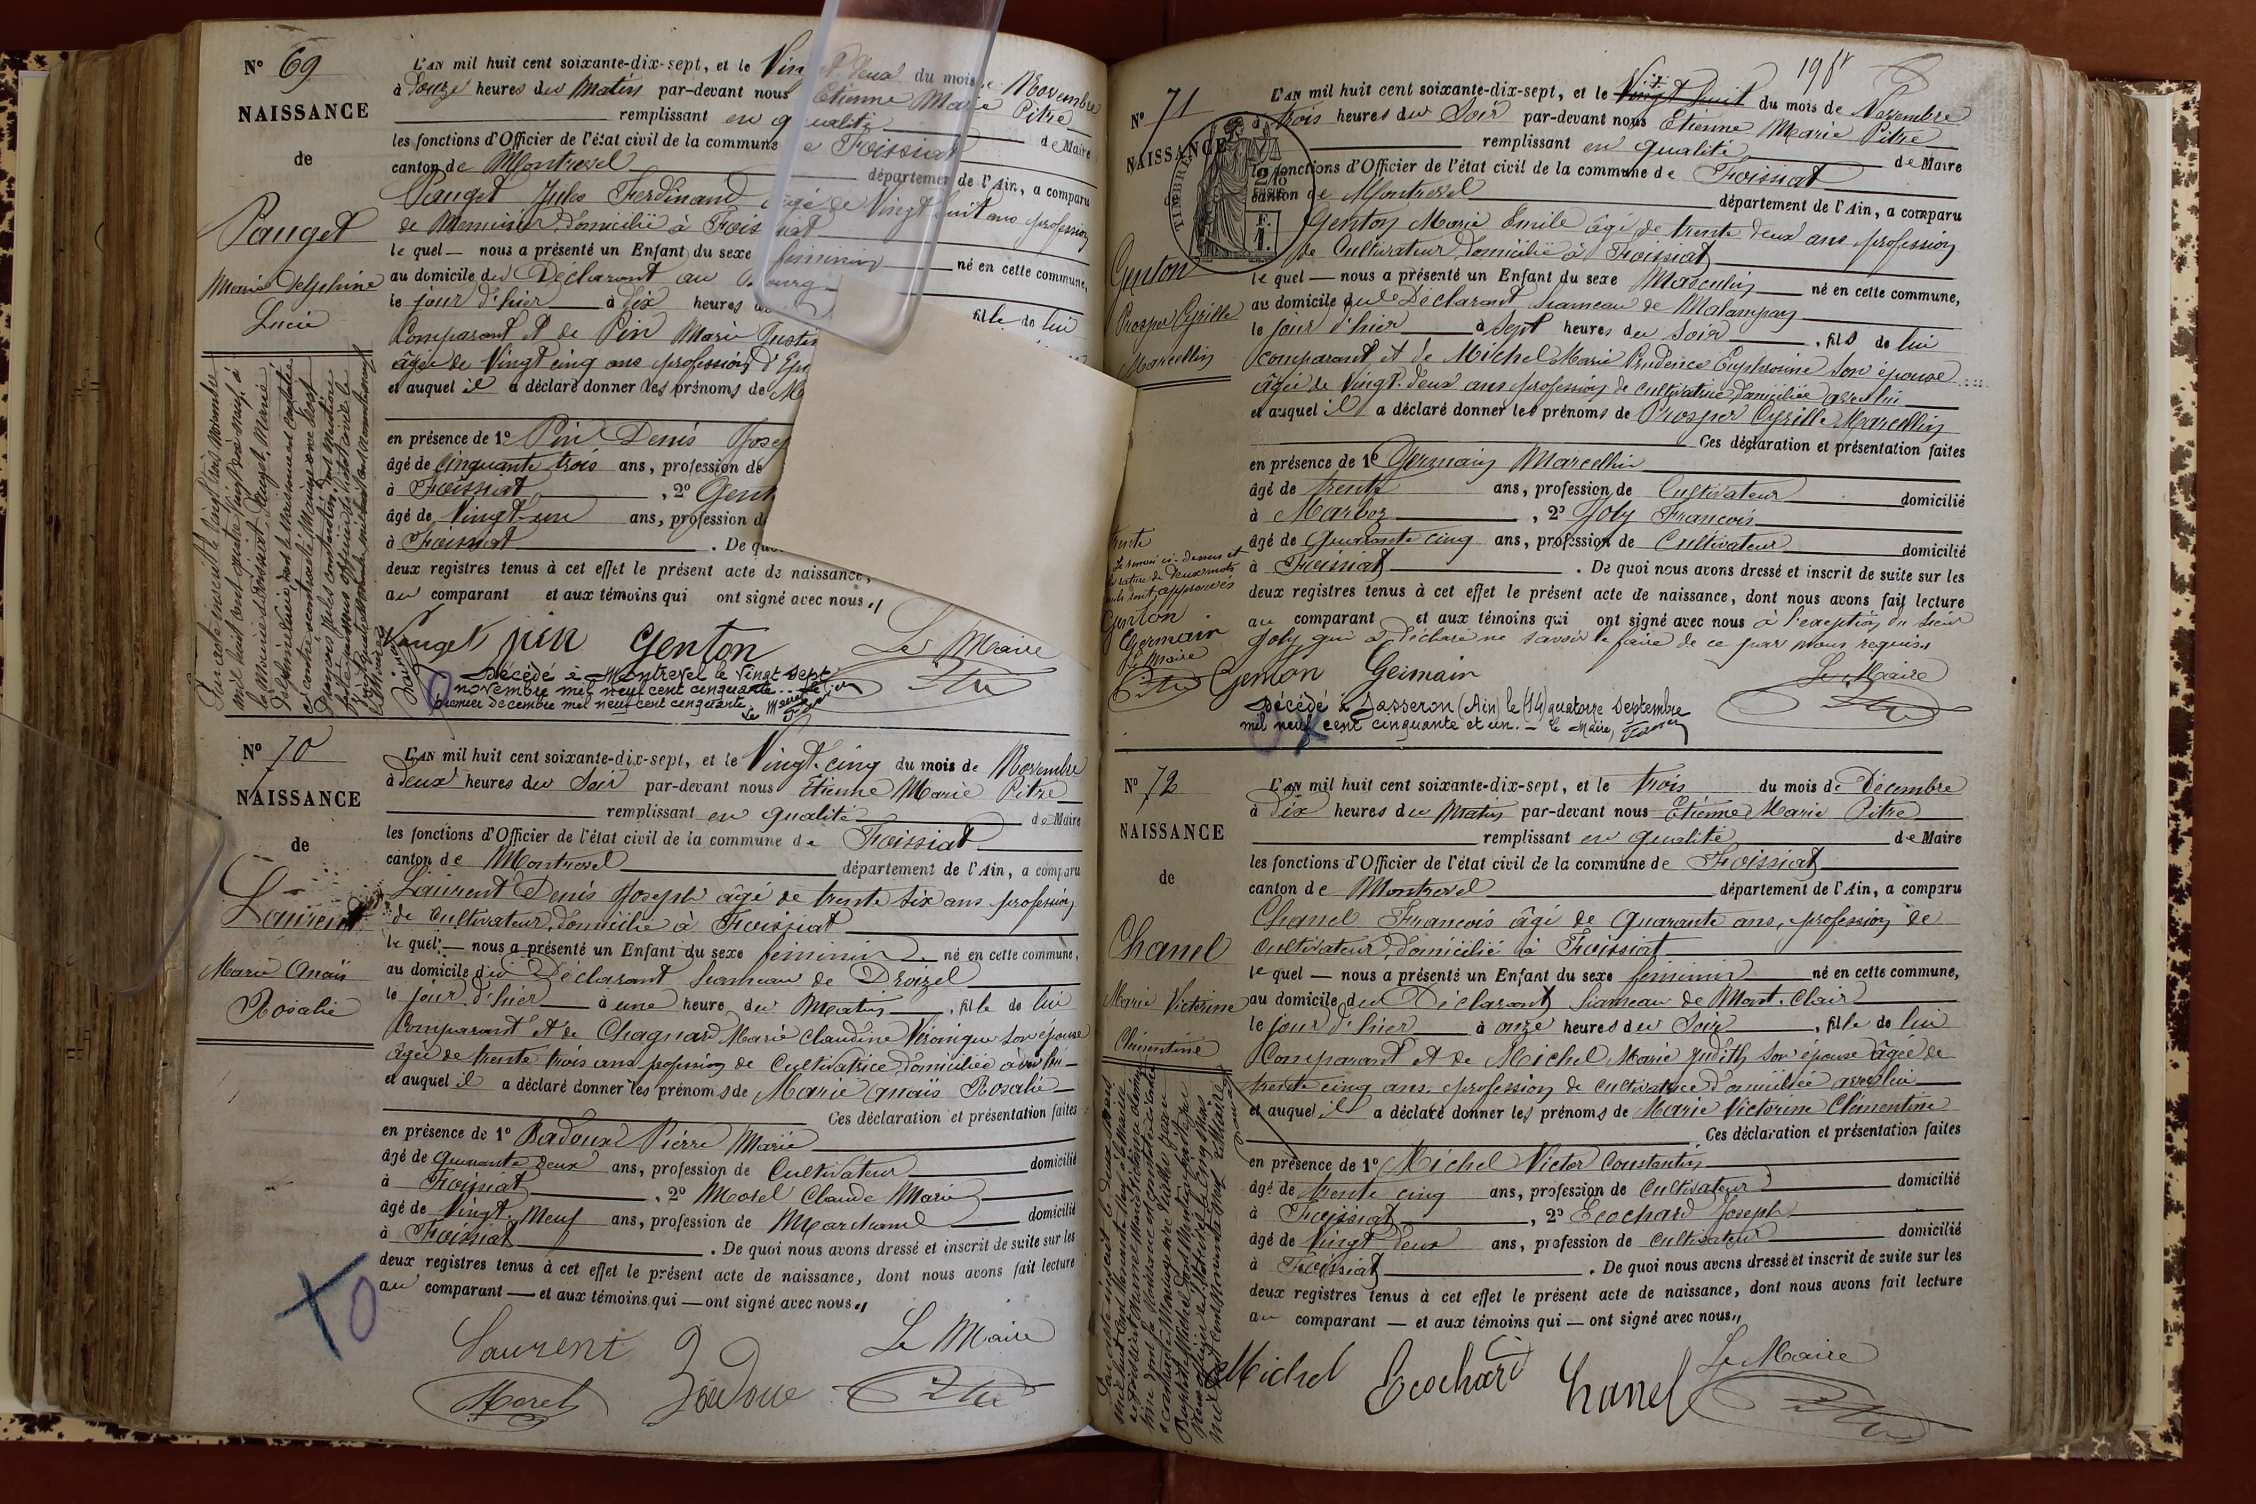 N° 69
NAISSANCE
de
Pauget
Marie Delphine
Lucie
L'AN mil huit cent soixante-dix-sept, et le Vingt deux du mois de Novembre
à Douze heures du Matin par-devant nous Etienne Marie Pitre
remplissant en qualité de Maire
les fonctions d'Officier de l'état civil de la commune de Foissiat
canton de Montrevel département de l'Ain, a comparu
Pauget Jules Ferdinand âgé de Vingt huit ans profession
de Menuisier, domicilié à Foissiat
le quel — nous a présenté un Enfant du sexe féminin né en cette commune,
au domicile du Déclarant au Bourg
le jour d'hier à dix heures du fille de lui
Comparant et de Pin Marie Justin
âgée de Vingt cinq ans profession d'
et auquel il a déclaré donner les prénoms de
en présence de 1° Pin Denis
âgé de cinquante trois ans, profession de
à Foissiat , 2° Gent
âgé de Vingt-un ans, profession d
à Foissiat . De quo
deux registres tenus à cet effet le présent acte de naissance,
au comparant et aux témoins qui ont signé avec nous
Pauget pin Genton Le Maire
Décédé à Montrevel le vingt sept
novembre mil neuf cent cinquante
premier décembre mil neuf cent cinquante
Le Maire
N° 70
NAISSANCE
de
Laurent
Marie Anaïs
Rosalie
L'AN mil huit cent soixante-dix-sept, et le Vingt-cinq du mois de Novembre
à deux heures du Soir par-devant nous Etienne Marie Pitre
remplissant en qualité de Maire
les fonctions d'Officier de l'état civil de la commune de Foissiat
canton de Montrevel département de l'Ain, a comparu
Laurent Denis Joseph âgé de trente six ans profession
de cultivateur, domicilié à Foissiat
le quel — nous a présenté un Enfant du sexe féminin né en cette commune,
au domicile du Déclarant hameau de Droizel
le jour d'hier à une heure du Matin , fille de lui
Comparant et de Chagnard Marie Claudine Véronique son épouse
âgée de trente trois ans profession de Cultivatrice domiciliée avec lui
et auquel il a déclaré donner les prénoms de Marie Anaïs Rosalie
Ces déclaration et présentation faites
en présence de 1° Badoux Pierre Marie
âgé de quarante deux ans, profession de Cultivateur domicilié
à Foissiat , 2° Morel Claude Marie
âgé de Vingt-Neuf ans, profession de Marchand domicilié
à Foissiat . De quoi nous avons dressé et inscrit de suite sur les
deux registres tenus à cet effet le présent acte de naissance, dont nous avons fait lecture
au comparant — et aux témoins qui — ont signé avec nous
Laurent Le Maire
Morel
198
N° 71
NAISSANCE
de
Genton
Prosper Cyrille
Marcellin
TIMBRE
L'AN mil huit cent soixante-dix-sept, et le Vingt huit du mois de Novembre
à trois heures du Soir par-devant nous Etienne Marie Pitre
remplissant en qualité de Maire
les fonctions d'Officier de l'état civil de la commune de Foissiat
canton de Montrevel département de l'Ain, a comparu
Genton Marie Emile âgé de trente deux ans profession
de Cultivateur domicilié à Foissiat
le quel — nous a présenté un Enfant du sexe Masculin né en cette commune,
au domicile du Déclarant hameau de Malampay
le jour d'hier à sept heures du soir , fils de lui
comparant et de Michel Marie Prudence Euphrosine son épouse
âgée de Vingt-deux ans profession de cultivatrice domiciliée avec lui
et auquel il a déclaré donner les prénoms de Prosper Cyrille Marcellin
Ces déclaration et présentation faites
en présence de 1° Germain Marcellin
âgé de trente ans, profession de Cultivateur domicilié
à Marboz , 2° Joly François
âgé de Quarante cinq ans, profession de Cultivateur domicilié
à Foissiat . De quoi nous avons dressé et inscrit de suite sur les
deux registres tenus à cet effet le présent acte de naissance, dont nous avons fait lecture
au comparant et aux témoins qui ont signé avec nous à l'exception du sieur
Joly qui a déclaré ne savoir le faire de ce par nous requis
Genton Germain Le Maire
Décédé à Jasseron (Ain) le (14) quatorze Septembre
mil neuf cent cinquante et un. - Le Maire,
trente
Le renvoi ci-dessus et
la rature de deux mots
nuls sont approuvés
Genton
Germain
Le Maire
N° 72
NAISSANCE
de
Chanel
Marie Victorine
Clémentine
L'AN mil huit cent soixante-dix-sept, et le trois du mois de Décembre
à dix heures du Matin par-devant nous Etienne Marie Pitre
remplissant en qualité de Maire
les fonctions d'Officier de l'état civil de la commune de Foissiat
canton de Montrevel département de l'Ain, a comparu
Chanel François âgé de Quarante ans, profession de
cultivateur, domicilié à Foissiat
le quel — nous a présenté un Enfant du sexe féminin né en cette commune,
au domicile du Déclarant hameau de Mont-Clair
le jour d'hier à onze heures du Soir , fille de lui
Comparant et de Michel Marie Judith son épouse âgée de
trente cinq ans, profession de cultivatrice domiciliée avec lui
et auquel il a déclaré donner les prénoms de Marie Victorine Clémentine
Ces déclaration et présentation faites
en présence de 1° Michel Victor Constantin
âgé de trente cinq ans, profession de Cultivateur domicilié
à Foissiat , 2° Ecochard Joseph
âgé de Vingt deux ans, profession de cultivateur domicilié
à Foissiat . De quoi nous avons dressé et inscrit de suite sur les
deux registres tenus à cet effet le présent acte de naissance, dont nous avons fait lecture
au comparant — et aux témoins qui — ont signé avec nous
Michel Ecochard Chanel Le Maire